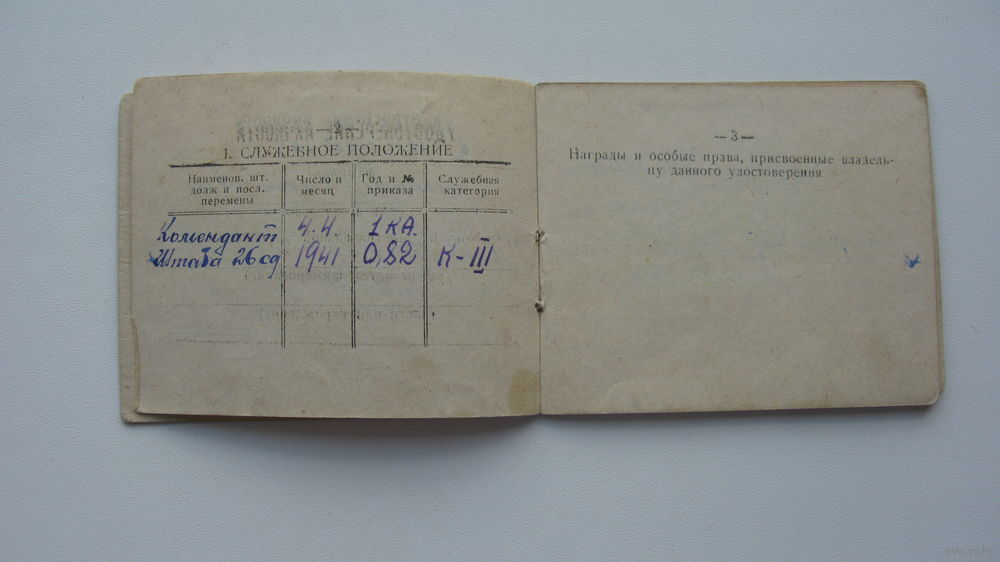 — 2 —
1. СЛУЖЕБНОЕ ПОЛОЖЕНИЕ
Наименов. шт. долж и посл. перемены
Число и месяц
Год и № приказа
Служебная категория
Комендант штаба 26 сд
4.4. 1941
1 КА. 0,82
К-III
— 3 —
Награды и особые права, присвоенные владель-
цу данного удостоверения
www.ay.by